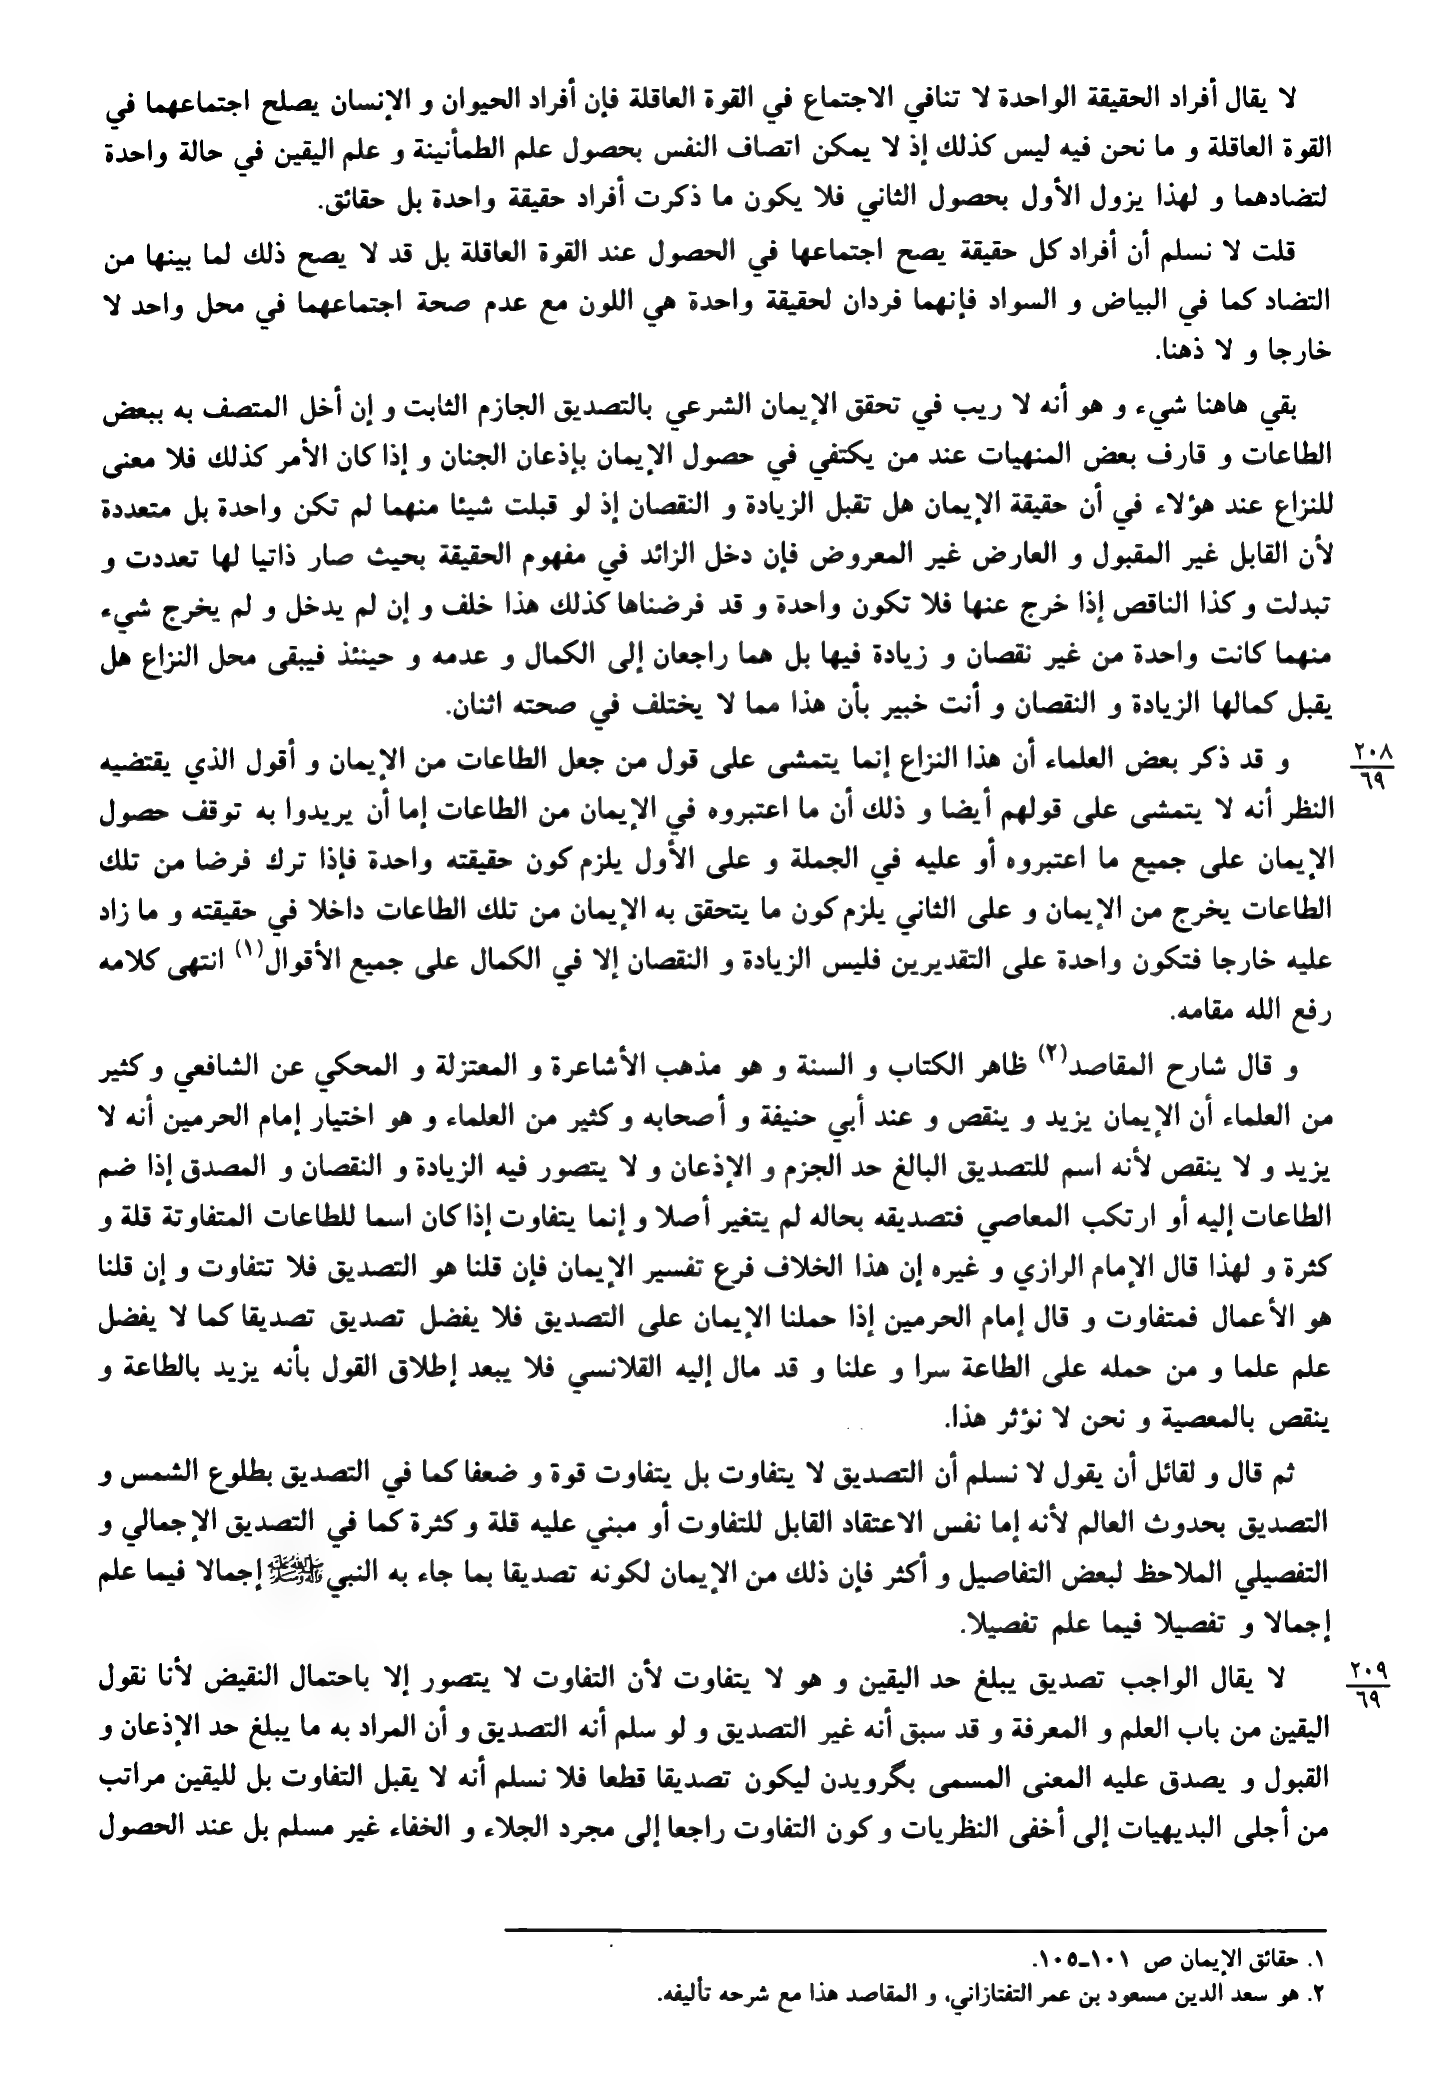 لا يقال أفراد الحقيقة الواحدة لا تنافي الاجتماع في القوة العاقلة فإن أفراد الحيوان و الإنسان يصلح اجتماعهما في
القوة العاقلة و ما نحن فيه ليس كذلك إذ لا يمكن اتصاف النفس بحصول علم الطمأنينة و علم اليقين في حالة واحدة
لتضادهما و لهذا يزول الأول بحصول الثاني فلا يكون ما ذكرت أفراد حقيقة واحدة بل حقائق.
قلت لا نسلم أن أفراد كل حقيقة يصح اجتماعها في الحصول عند القوة العاقلة بل قد لا يصح ذلك لما بينها من
التضاد كما في البياض و السواد فإنهما فردان لحقيقة واحدة هي اللون مع عدم صحة اجتماعهما في محل واحد لا
خارجا و لا ذهنا.
بقي هاهنا شيء و هو أنه لا ريب في تحقق الإيمان الشرعي بالتصديق الجازم الثابت و إن أخل المتصف به ببعض
الطاعات و قارف بعض المنهيات عند من يكتفي في حصول الإيمان بإذعان الجنان و إذا كان الأمر كذلك فلا معنى
للنزاع عند هؤلاء في أن حقيقة الإيمان هل تقبل الزيادة و النقصان إذ لو قبلت شيئا منهما لم تكن واحدة بل متعددة
لأن القابل غير المقبول و العارض غير المعروض فإن دخل الزائد في مفهوم الحقيقة بحيث صار ذاتيا لها تعددت و
تبدلت و كذا الناقص إذا خرج عنها فلا تكون واحدة و قد فرضناها كذلك هذا خلف و إن لم يدخل و لم يخرج شيء
منهما كانت واحدة من غير نقصان و زيادة فيها بل هما راجعان إلى الكمال و عدمه و حينئذ فيبقى محل النزاع هل
يقبل كمالها الزيادة و النقصان و أنت خبير بأن هذا مما لا يختلف في صحته اثنان.
٢٠٨
٦٩
و قد ذكر بعض العلماء أن هذا النزاع إنما يتمشى على قول من جعل الطاعات من الإيمان و أقول الذي يقتضيه
النظر أنه لا يتمشى على قولهم أيضا و ذلك أن ما اعتبروه في الإيمان من الطاعات إما أن يريدوا به توقف حصول
الإيمان على جميع ما اعتبروه أو عليه في الجملة و على الأول يلزم كون حقيقته واحدة فإذا ترك فرضا من تلك
الطاعات يخرج من الإيمان و على الثاني يلزم كون ما يتحقق به الإيمان من تلك الطاعات داخلا في حقيقته و ما زاد
عليه خارجا فتكون واحدة على التقديرين فليس الزيادة و النقصان إلا في الكمال على جميع الأقوال(١) انتهى كلامه
رفع الله مقامه.
و قال شارح المقاصد(٢) ظاهر الكتاب و السنة و هو مذهب الأشاعرة و المعتزلة و المحكي عن الشافعي و كثير
من العلماء أن الإيمان يزيد و ينقص و عند أبي حنيفة و أصحابه و كثير من العلماء و هو اختيار إمام الحرمين أنه لا
يزيد و لا ينقص لأنه اسم للتصديق البالغ حد الجزم و الإذعان و لا يتصور فيه الزيادة و النقصان و المصدق إذا ضم
الطاعات إليه أو ارتكب المعاصي فتصديقه بحاله لم يتغير أصلا و إنما يتفاوت إذا كان اسما للطاعات المتفاوتة قلة و
كثرة و لهذا قال الإمام الرازي و غيره إن هذا الخلاف فرع تفسير الإيمان فإن قلنا هو التصديق فلا تتفاوت و إن قلنا
هو الأعمال فمتفاوت و قال إمام الحرمين إذا حملنا الإيمان على التصديق فلا يفضل تصديق تصديقا كما لا يفضل
علم علما و من حمله على الطاعة سرا و علنا و قد مال إليه القلانسي فلا يبعد إطلاق القول بأنه يزيد بالطاعة و
ينقص بالمعصية و نحن لا نؤثر هذا.
ثم قال و لقائل أن يقول لا نسلم أن التصديق لا يتفاوت بل يتفاوت قوة و ضعفا كما في التصديق بطلوع الشمس و
التصديق بحدوث العالم لأنه إما نفس الاعتقاد القابل للتفاوت أو مبني عليه قلة و كثرة كما في التصديق الإجمالي و
التفصيلي الملاحظ لبعض التفاصيل و أكثر فإن ذلك من الإيمان لكونه تصديقا بما جاء به النبي صلى الله عليه وآله وسلم إجمالا فيما علم
إجمالا و تفصيلا فيما علم تفصيلا.
٢٠٩
٦٩
لا يقال الواجب تصديق يبلغ حد اليقين و هو لا يتفاوت لأن التفاوت لا يتصور إلا باحتمال النقيض لأنا نقول
اليقين من باب العلم و المعرفة و قد سبق أنه غير التصديق و لو سلم أنه التصديق و أن المراد به ما يبلغ حد الإذعان و
القبول و يصدق عليه المعنى المسمى بگرويدن ليكون تصديقا قطعا فلا نسلم أنه لا يقبل التفاوت بل لليقين مراتب
من أجلى البديهيات إلى أخفى النظريات و كون التفاوت راجعا إلى مجرد الجلاء و الخفاء غير مسلم بل عند الحصول
١. حقائق الإيمان ص ١٠١ـ١٠٥.
٢. هو سعد الدين مسعود بن عمر التفتازاني، و المقاصد هذا مع شرحه تأليفه.